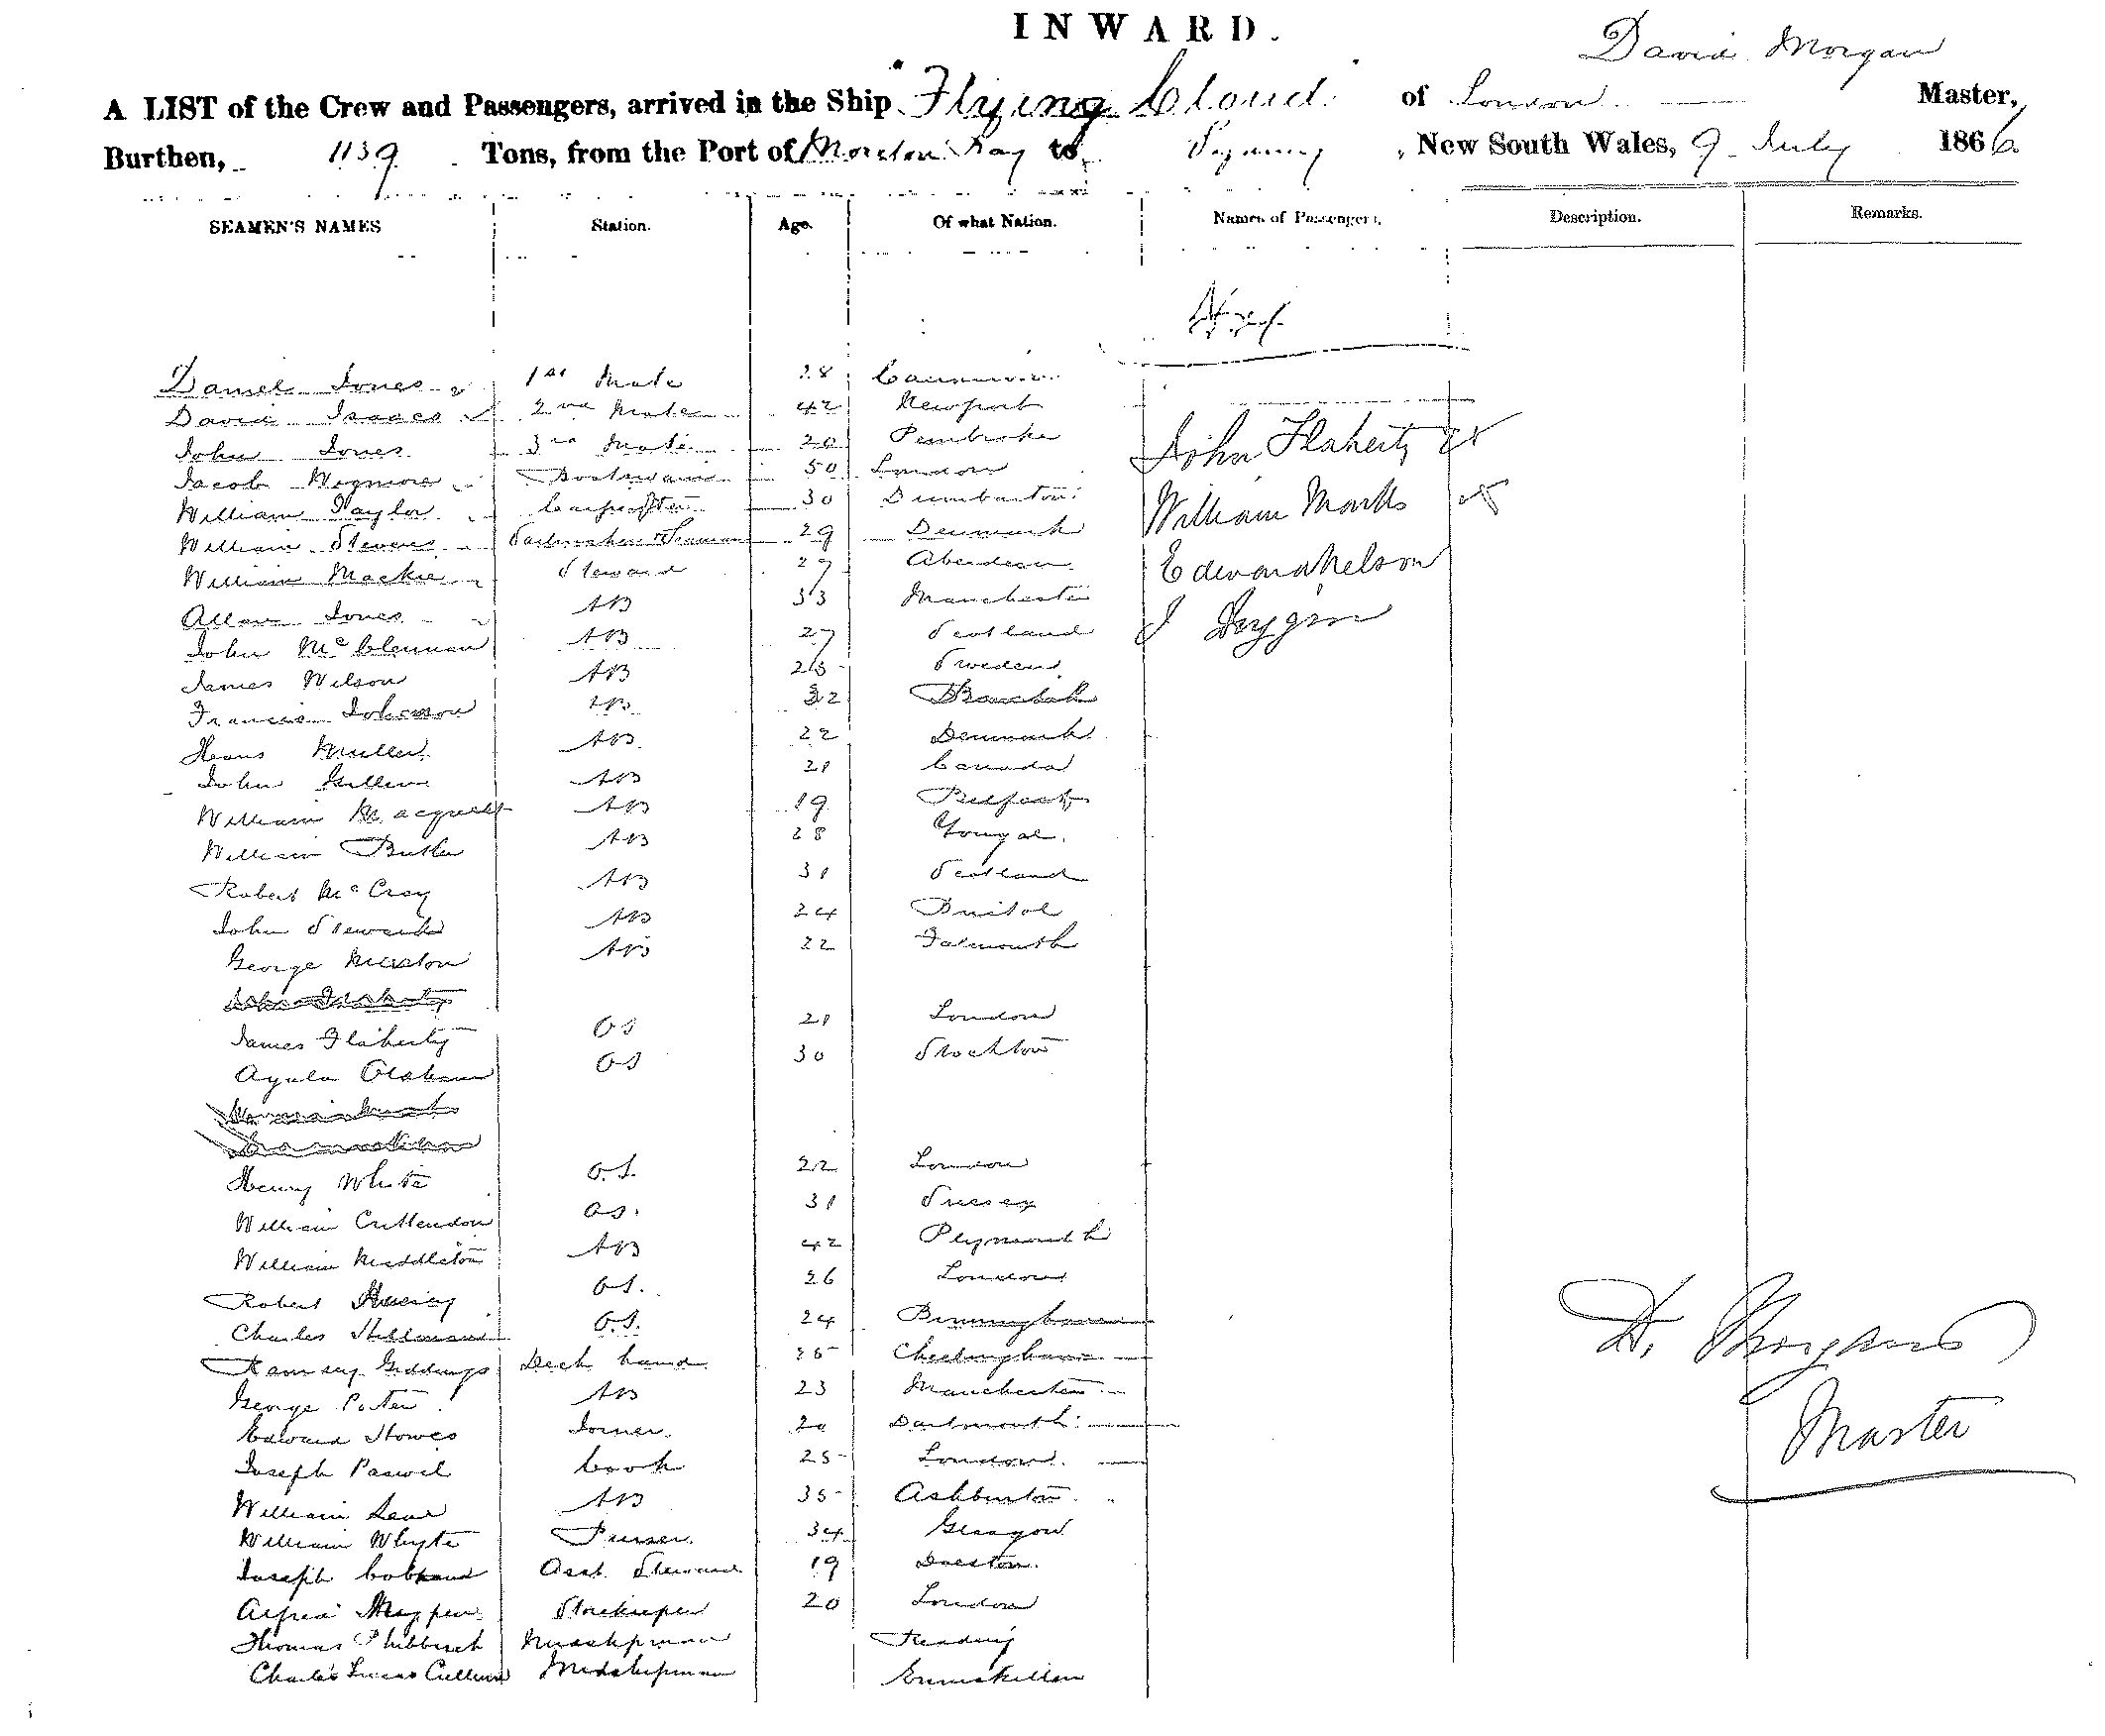 INWARD.
David Morgan
A LIST of the Crew and Passengers, arrived in the Ship "Flying Cloud" of London Master,
Burthen, 1139 Tons, from the Port of Moreton Bay to Sydney, New South Wales, 9 July 1866
SEAMEN'S NAMES Station. Age. Of what Nation. Names of Passengers. Description. Remarks.
Daniel Jones 1st Mate 28
David Isaacs 2nd Mate 42 Newport
John Jones 3rd Mate 20 Pembroke
John Flaherty
Jacob Boatswain 50 London
William Taylor Carpenter 30 Dumbarton
William Marks
William Stevens Sailmaker & Seaman 29 Denmark
William Mackie Steward 27 Aberdeen
Edward Nelson
Allan Jones AB 33 Manchester
John McClennan AB 27 Scotland
James Wilson AB 25 Sweden
Francis Johnson AB 22
Hans Muller AB 22 Denmark
John AB 21 Canada
William AB 19 Belfast
William Butler AB 28 Yougal.
Robert McCroy AB 31 Scotland
John Steward AB 24 Bristol
George AB 22 Falmouth
John Flaherty
James Flaherty OS 21 London
OS 30 Stockton
Henry White O.S. 22 London
William Crittendon OS. 31 Sussex
William Middleton AB 42 Plymouth
Robert O.S. 26 London
Charles Stillman O.S. 24 Birmingham
Ramsey Giddings Deck hand
George Porter AB 23 Manchester
Edward Howes Joiner 20 Dartmouth
Joseph Cook 25 London
William AB 35 Ashburton
William Whyte Purser 34 Glasgow
Joseph Asst. Steward 19
Alfred Storekeeper 20 London
Thomas Midshipman Reading
Charles Lucas Midshipman Enniskillen
D. Morgan
Master